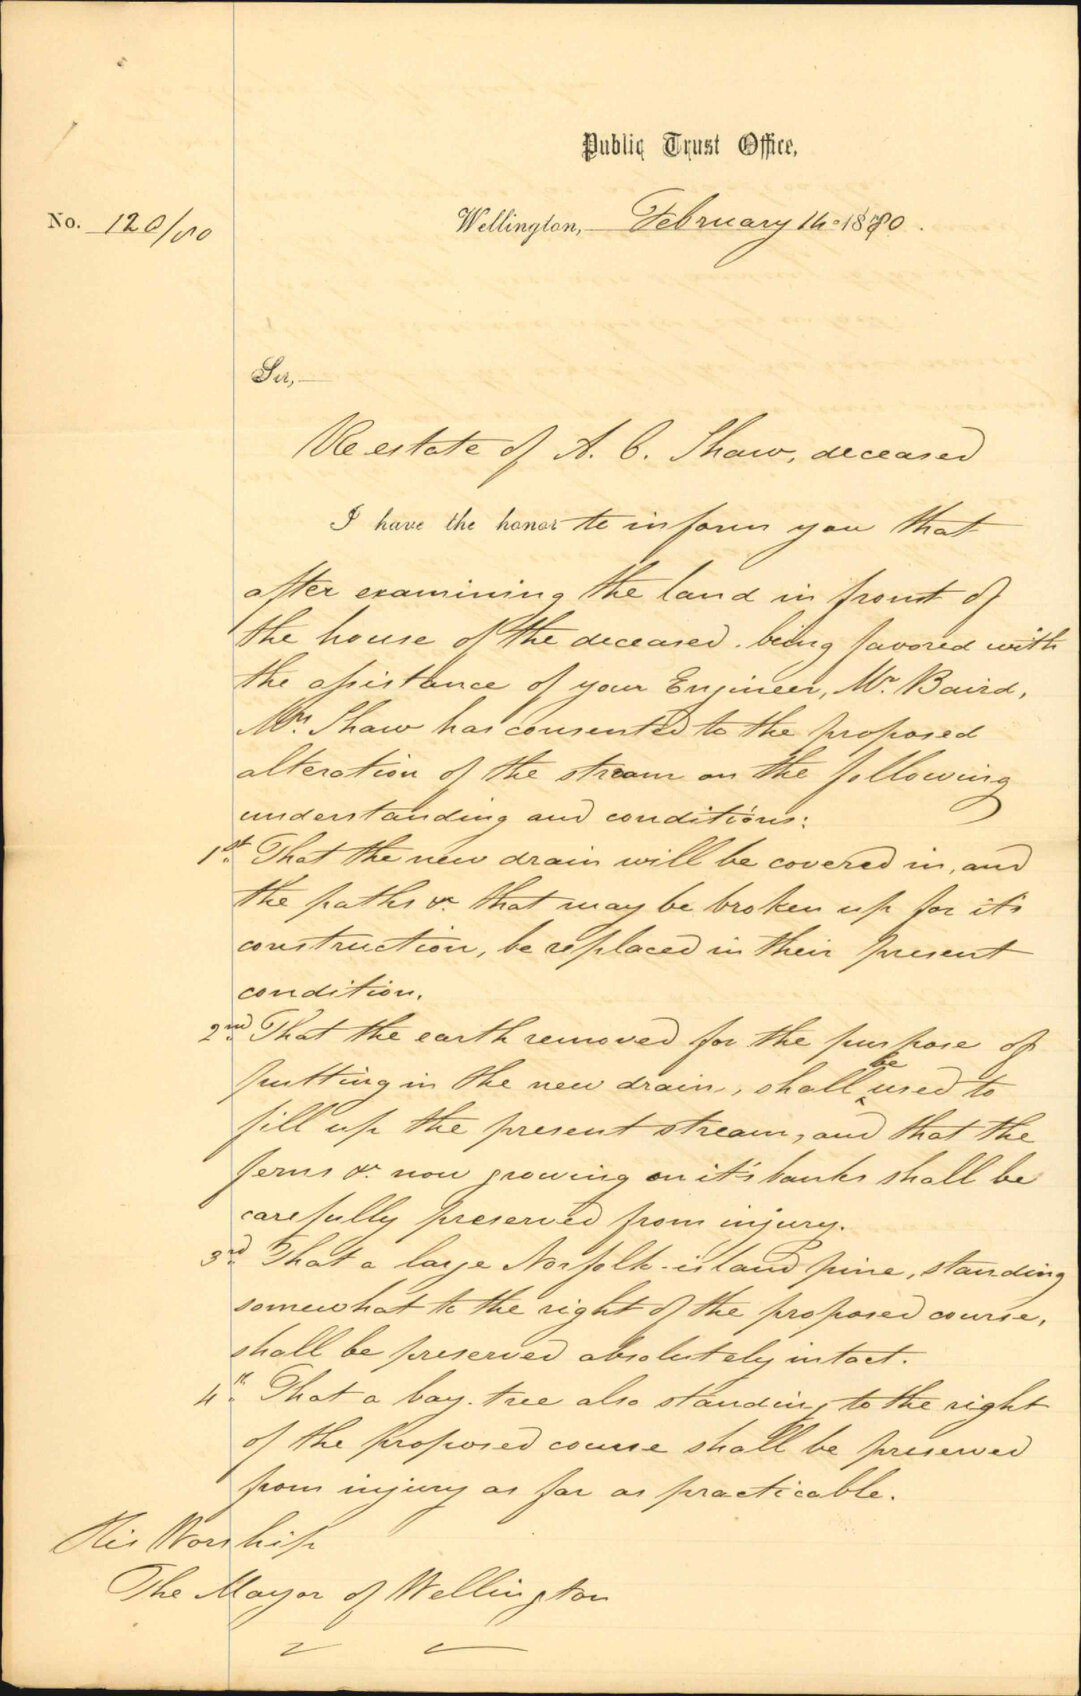 Public Trust Office,
No. 120/80
Wellington, February 14 1880.
Sir,
Re estate of A. C. Shaw, deceased
I have the honor to inform you that
after examining the land in front of
the house of the deceased. being favored with
the assistance of your Engineer, Mr. Baird,
Mrs Shaw has consented to the proposed
alteration of the stream on the following
understanding and conditions:
1st. That the new drain will be covered in, and
the paths &c. that may be broken up for it's
construction, be replaced in their present
condition.
2nd. That the earth removed for the purpose of
putting in the new drain, shall be used to
fill up the present stream, and that the
ferns &c. now growing on it's banks shall be
carefully preserved from injury.
3rd. That a large Norfolk-island pine, standing
somewhat to the right of the proposed course,
shall be preserved absolutely intact.
4th. That a bay-tree also standing to the right
of the proposed course shall be preserved
from injury as far as practicable.
His Worship
The Mayor of Wellington